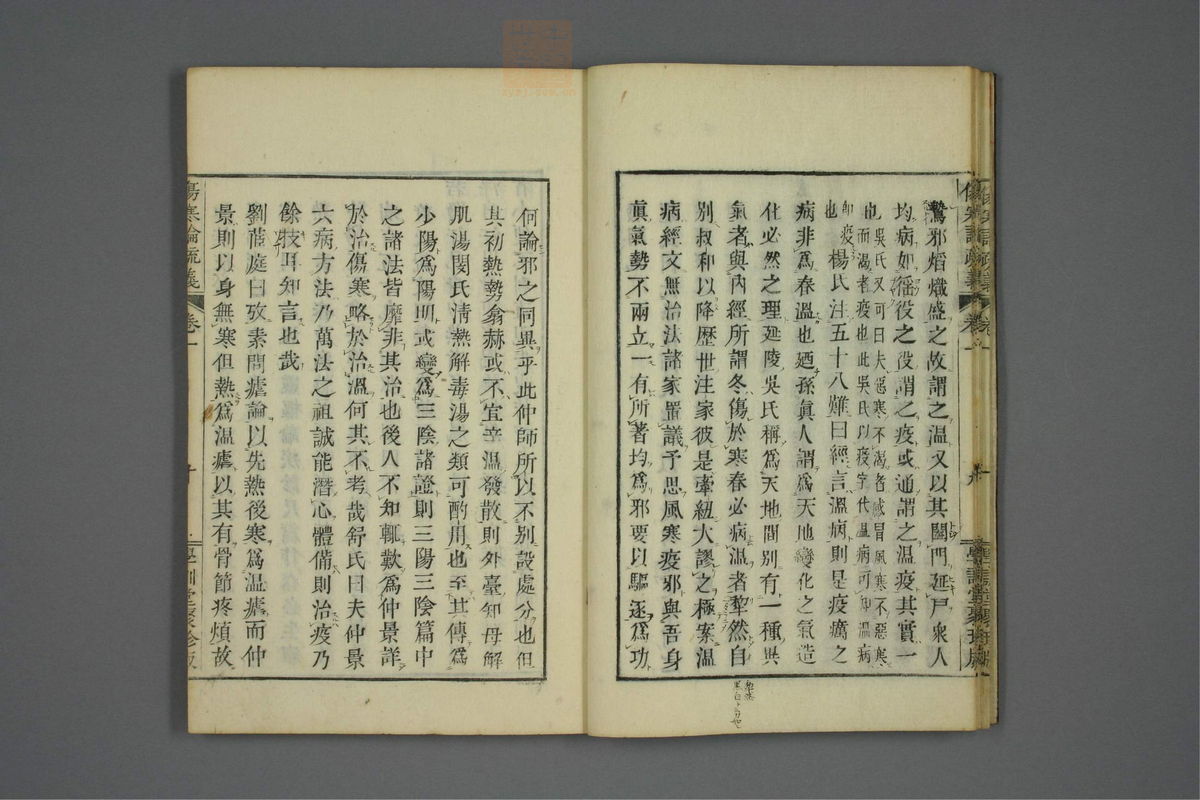 驚邪熖熾盛之故謂之溫又以其闔門延戸衆人
均病如徭役之役謂之疫或通謂之溫疫其實一
也吳氏又可曰夫惡寒不渴者感冒風寒不惡寒
而渴者疫也此吳氏以疫字代溫病可知溫病
即疫
也楊氏注五十八難曰經言溫病則是疫癘之
病非爲春溫也廼孫眞人謂爲天地變化之氣造
化必然之理延陵吳氏稱爲天地間別有一種異
氣者與內經所謂冬傷於寒春必病溫者犂然自
別叔和以降歷世注家彼是牽紐大謬之極案溫
病經文無治法諸家置議予思風寒疫邪與吾身
眞氣勢不兩立一有所著均爲邪要以驅逐爲功
何論邪之同異乎此仲師所以不別設處分也但
其初熱勢翕赫或不宜辛溫發散則外臺知母解
肌湯閔氏清熱解毒湯之類可酌用也至其傳爲
少陽爲陽明或變爲三陰諸證則三陽三陰篇中
之諸法皆靡非其治也後人不知輒歎爲仲景詳
於治傷寒略於治溫何其不考哉舒氏曰夫仲景
六病方法乃萬法之祖誠能潛心體備則治疫乃
餘技耳知言也哉
劉茝庭曰攷素問瘧論以先熱後寒爲溫瘧而仲
景則以身無寒但熱爲溫瘧以其有骨節疼煩故
傷寒論疏義
卷一
十
學訓堂聚珍版